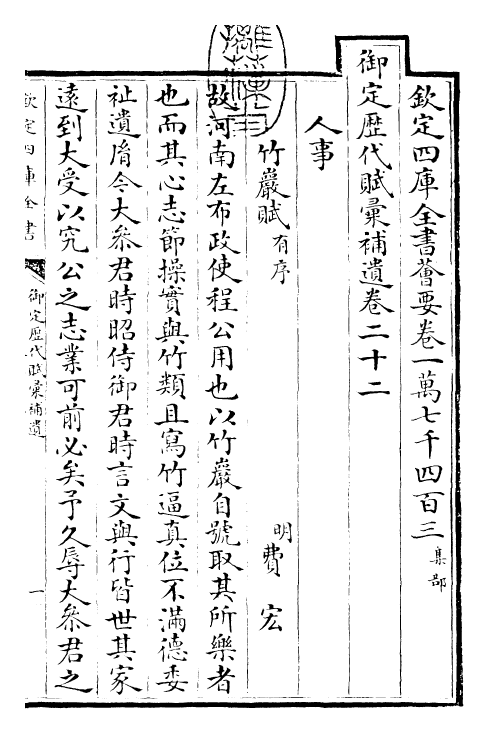 欽定四庫全書薈要卷一萬七千四百三 集部
御定歴代賦彙補遺卷二十二
人事
竹巖賦 有序 明 費宏
故河南左布政使程公用也以竹巖自號取其所樂者
也而其心志節操實與竹類且寫竹逼真位不滿德委
祉遺𦙍今大叅君時昭侍御君時言文與行皆世其家
遠到大受以究公之志業可前必矣予久辱大叅君之
欽定四庫全書
御定歴代賦彙補遺
一